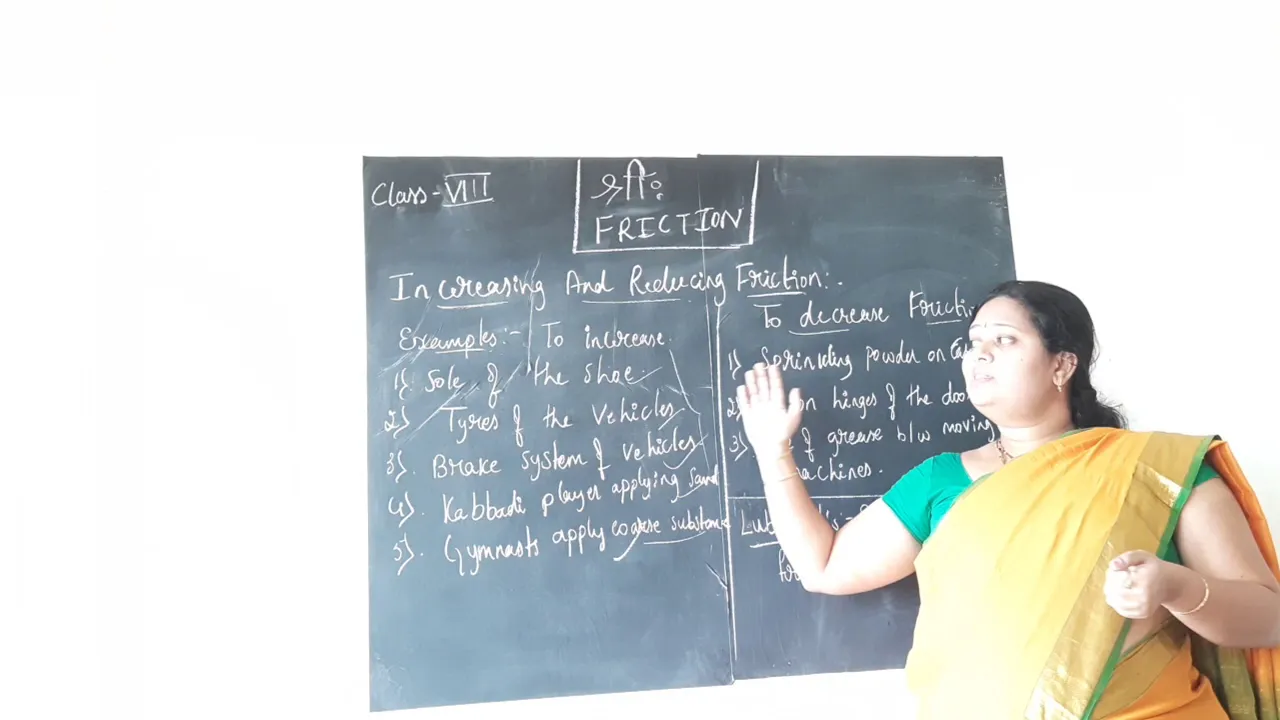 Class - VIII
श्रीः
FRICTION
Increasing And Reducing Friction:-
Examples:- To increase
1). Sole of the shoe
2). Tyres of the vehicles
3). Brake system of vehicles
4). Kabbadi player applying sand
5). Gymnasts apply coarse substance
To decrease
1). Sprinkling powder on
2) on hinges of the
3) of grease b/w moving
machines.